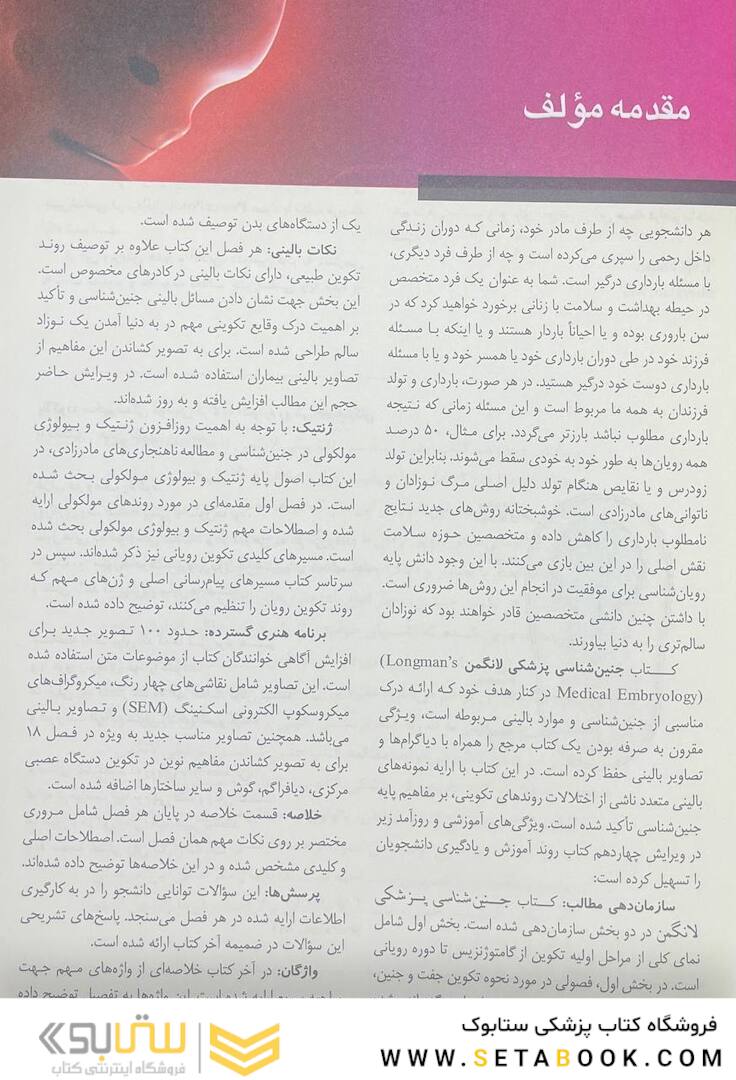 مقدمه مؤلف
هر دانشجویی چه از طرف مادر خود، زمانی که دوران زندگی
داخل رحمی را سپری می‌کرده است و چه از طرف فرد دیگری،
با مسئله بارداری درگیر است. شما به عنوان یک فرد متخصص
در حیطه بهداشت و سلامت با زنانی برخورد خواهید کرد که در
سن باروری بوده و یا احیاناً باردار هستند و یا اینکه با مسئله
فرزند خود در طی دوران بارداری خود یا همسر خود و یا با مسئله
بارداری دوست خود درگیر هستید. در هر صورت، بارداری و تولد
فرزندان به همه ما مربوط است و این مسئله زمانی که نتیجه
بارداری مطلوب نباشد بارزتر می‌گردد. برای مثال، ۵۰ درصد
همه رویان‌ها به طور خود به خودی سقط می‌شوند. بنابراین تولد
زودرس و یا نقایص هنگام تولد دلیل اصلی مرگ نوزادان و
ناتوانی‌های مادرزادی است. خوشبختانه روش‌های جدید نتایج
نامطلوب بارداری را کاهش داده و متخصصین حوزه سلامت
نقش اصلی را در این بین بازی می‌کنند. با این وجود دانش پایه
رویان‌شناسی برای موفقیت در انجام این روش‌ها ضروری است.
با داشتن چنین دانشی متخصصین قادر خواهند بود که نوزادان
سالم‌تری را به دنیا بیاورند.
کتاب جنین‌شناسی پزشکی لانگمن (Longman's
Medical Embryology) در کنار هدف خود که ارائه درک
مناسبی از جنین‌شناسی و موارد بالینی مربوطه است، ویژگی
مقرون به صرفه بودن یک کتاب مرجع را همراه با دیاگرام‌ها و
تصاویر بالینی حفظ کرده است. در این کتاب با ارایه نمونه‌های
بالینی متعدد ناشی از اختلالات روندهای تکوینی، بر مفاهیم پایه
جنین‌شناسی تأکید شده است. ویژگی‌های آموزشی و روزآمد زیر
در ویرایش چهاردهم کتاب روند آموزش و یادگیری دانشجویان
را تسهیل کرده است:
سازمان‌دهی مطالب: کتاب جنین‌شناسی پزشکی
لانگمن در دو بخش سازمان‌دهی شده است. بخش اول شامل
نمای کلی از مراحل اولیه تکوین از گامتوژنزیس تا دوره رویانی
است. در بخش اول، فصولی در مورد نحوه تکوین جفت و جنین،
یک از دستگاه‌های بدن توصیف شده است.
نکات بالینی: هر فصل این کتاب علاوه بر توصیف روند
تکوین طبیعی، دارای نکات بالینی در کادرهای مخصوص است.
این بخش جهت نشان دادن مسائل بالینی جنین‌شناسی و تأکید
بر اهمیت درک وقایع تکوینی مهم در به دنیا آمدن یک نوزاد
سالم طراحی شده است. برای به تصویر کشاندن این مفاهیم از
تصاویر بالینی بیماران استفاده شده است. در ویرایش حاضر
حجم این مطالب افزایش یافته و به روز شده‌اند.
ژنتیک: با توجه به اهمیت روزافزون ژنتیک و بیولوژی
مولکولی در جنین‌شناسی و مطالعه ناهنجاری‌های مادرزادی، در
این کتاب اصول پایه ژنتیک و بیولوژی مولکولی بحث شده
است. در فصل اول مقدمه‌ای در مورد روندهای مولکولی ارایه
شده و اصطلاحات مهم ژنتیک و بیولوژی مولکولی بحث شده
است. مسیرهای کلیدی تکوین رویانی نیز ذکر شده‌اند. سپس در
سرتاسر کتاب مسیرهای پیام‌رسانی اصلی و ژن‌های مهم که
روند تکوین رویان را تنظیم می‌کنند، توضیح داده شده است.
برنامه هنری گسترده: حدود ۱۰۰ تصویر جدید برای
افزایش آگاهی خوانندگان کتاب از موضوعات متن استفاده شده
است. این تصاویر شامل نقاشی‌های چهار رنگ، میکروگراف‌های
میکروسکوپ الکترونی اسکنینگ (SEM) و تصاویر بالینی
می‌باشد. همچنین تصاویر مناسب جدید به ویژه در فصل ۱۸
برای به تصویر کشاندن مفاهیم نوین در تکوین دستگاه عصبی
مرکزی، دیافراگم، گوش و سایر ساختارها اضافه شده است.
خلاصه: قسمت خلاصه در پایان هر فصل شامل مروری
مختصر بر روی نکات مهم همان فصل است. اصطلاحات اصلی
و کلیدی مشخص شده و در این خلاصه‌ها توضیح داده شده‌اند.
پرسش‌ها: این سؤالات توانایی دانشجو را در به کارگیری
اطلاعات ارایه شده در هر فصل می‌سنجد. پاسخ‌های تشریحی
این سؤالات در ضمیمه آخر کتاب ارائه شده است.
واژگان: در آخر کتاب خلاصه‌ای از واژه‌های مهم جهت
ارایه شده است. این واژه‌ها به تفصیل توضیح داده
فروشگاه کتاب پزشکی ستابوک
WWW.SETABOOK.COM
ستابوک
فروشگاه اینترنتی کتاب